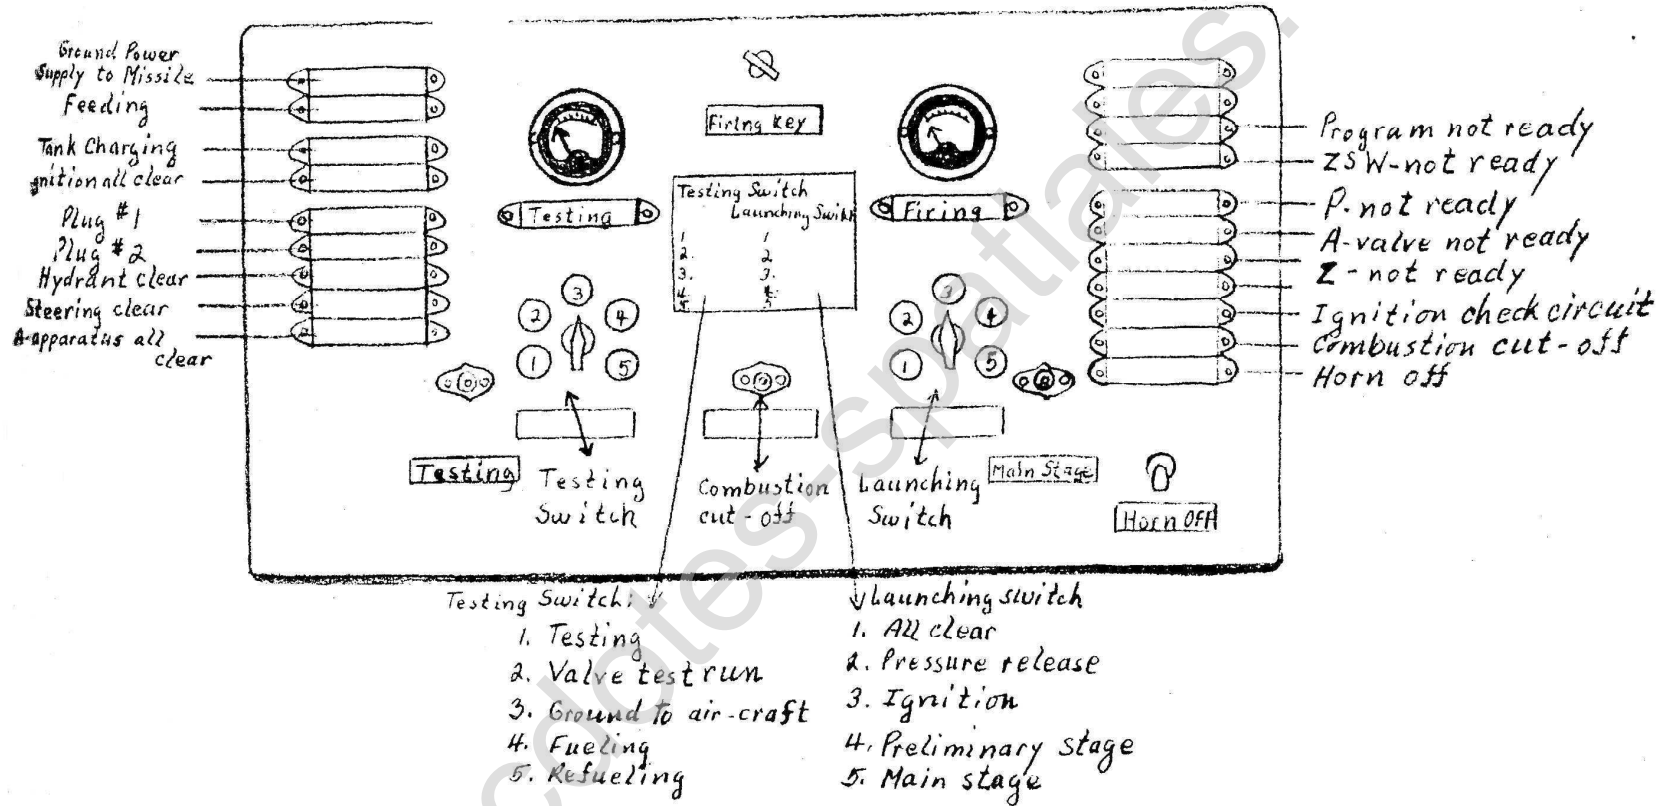 Ground Power
Supply to Missile
Feeding
Tank Charging
gnition all clear
Plug #1
Plug #2
Hydrant clear
Steering clear
A-apparatus all
clear
Firing Key
Testing
Testing Switch
Launching Switch
1 1
2. 2
3. 3.
4. 4.
5. 5
Firing
1
2
3
4
5
1
2
3
4
5
Testing
Testing
Switch
Combustion
cut-off
Launching
Switch
Main Stage
Horn OFF
Program not ready
ZSW-not ready
P. not ready
A-valve not ready
Z-not ready
Ignition check circuit
Combustion cut-off
Horn off
Testing Switch:
1. Testing
2. Valve test run
3. Ground to air-craft
4. Fueling
5. Refueling
Launching switch
1. All clear
2. Pressure release
3. Ignition
4. Preliminary stage
5. Main stage
cdotes-spatiales.